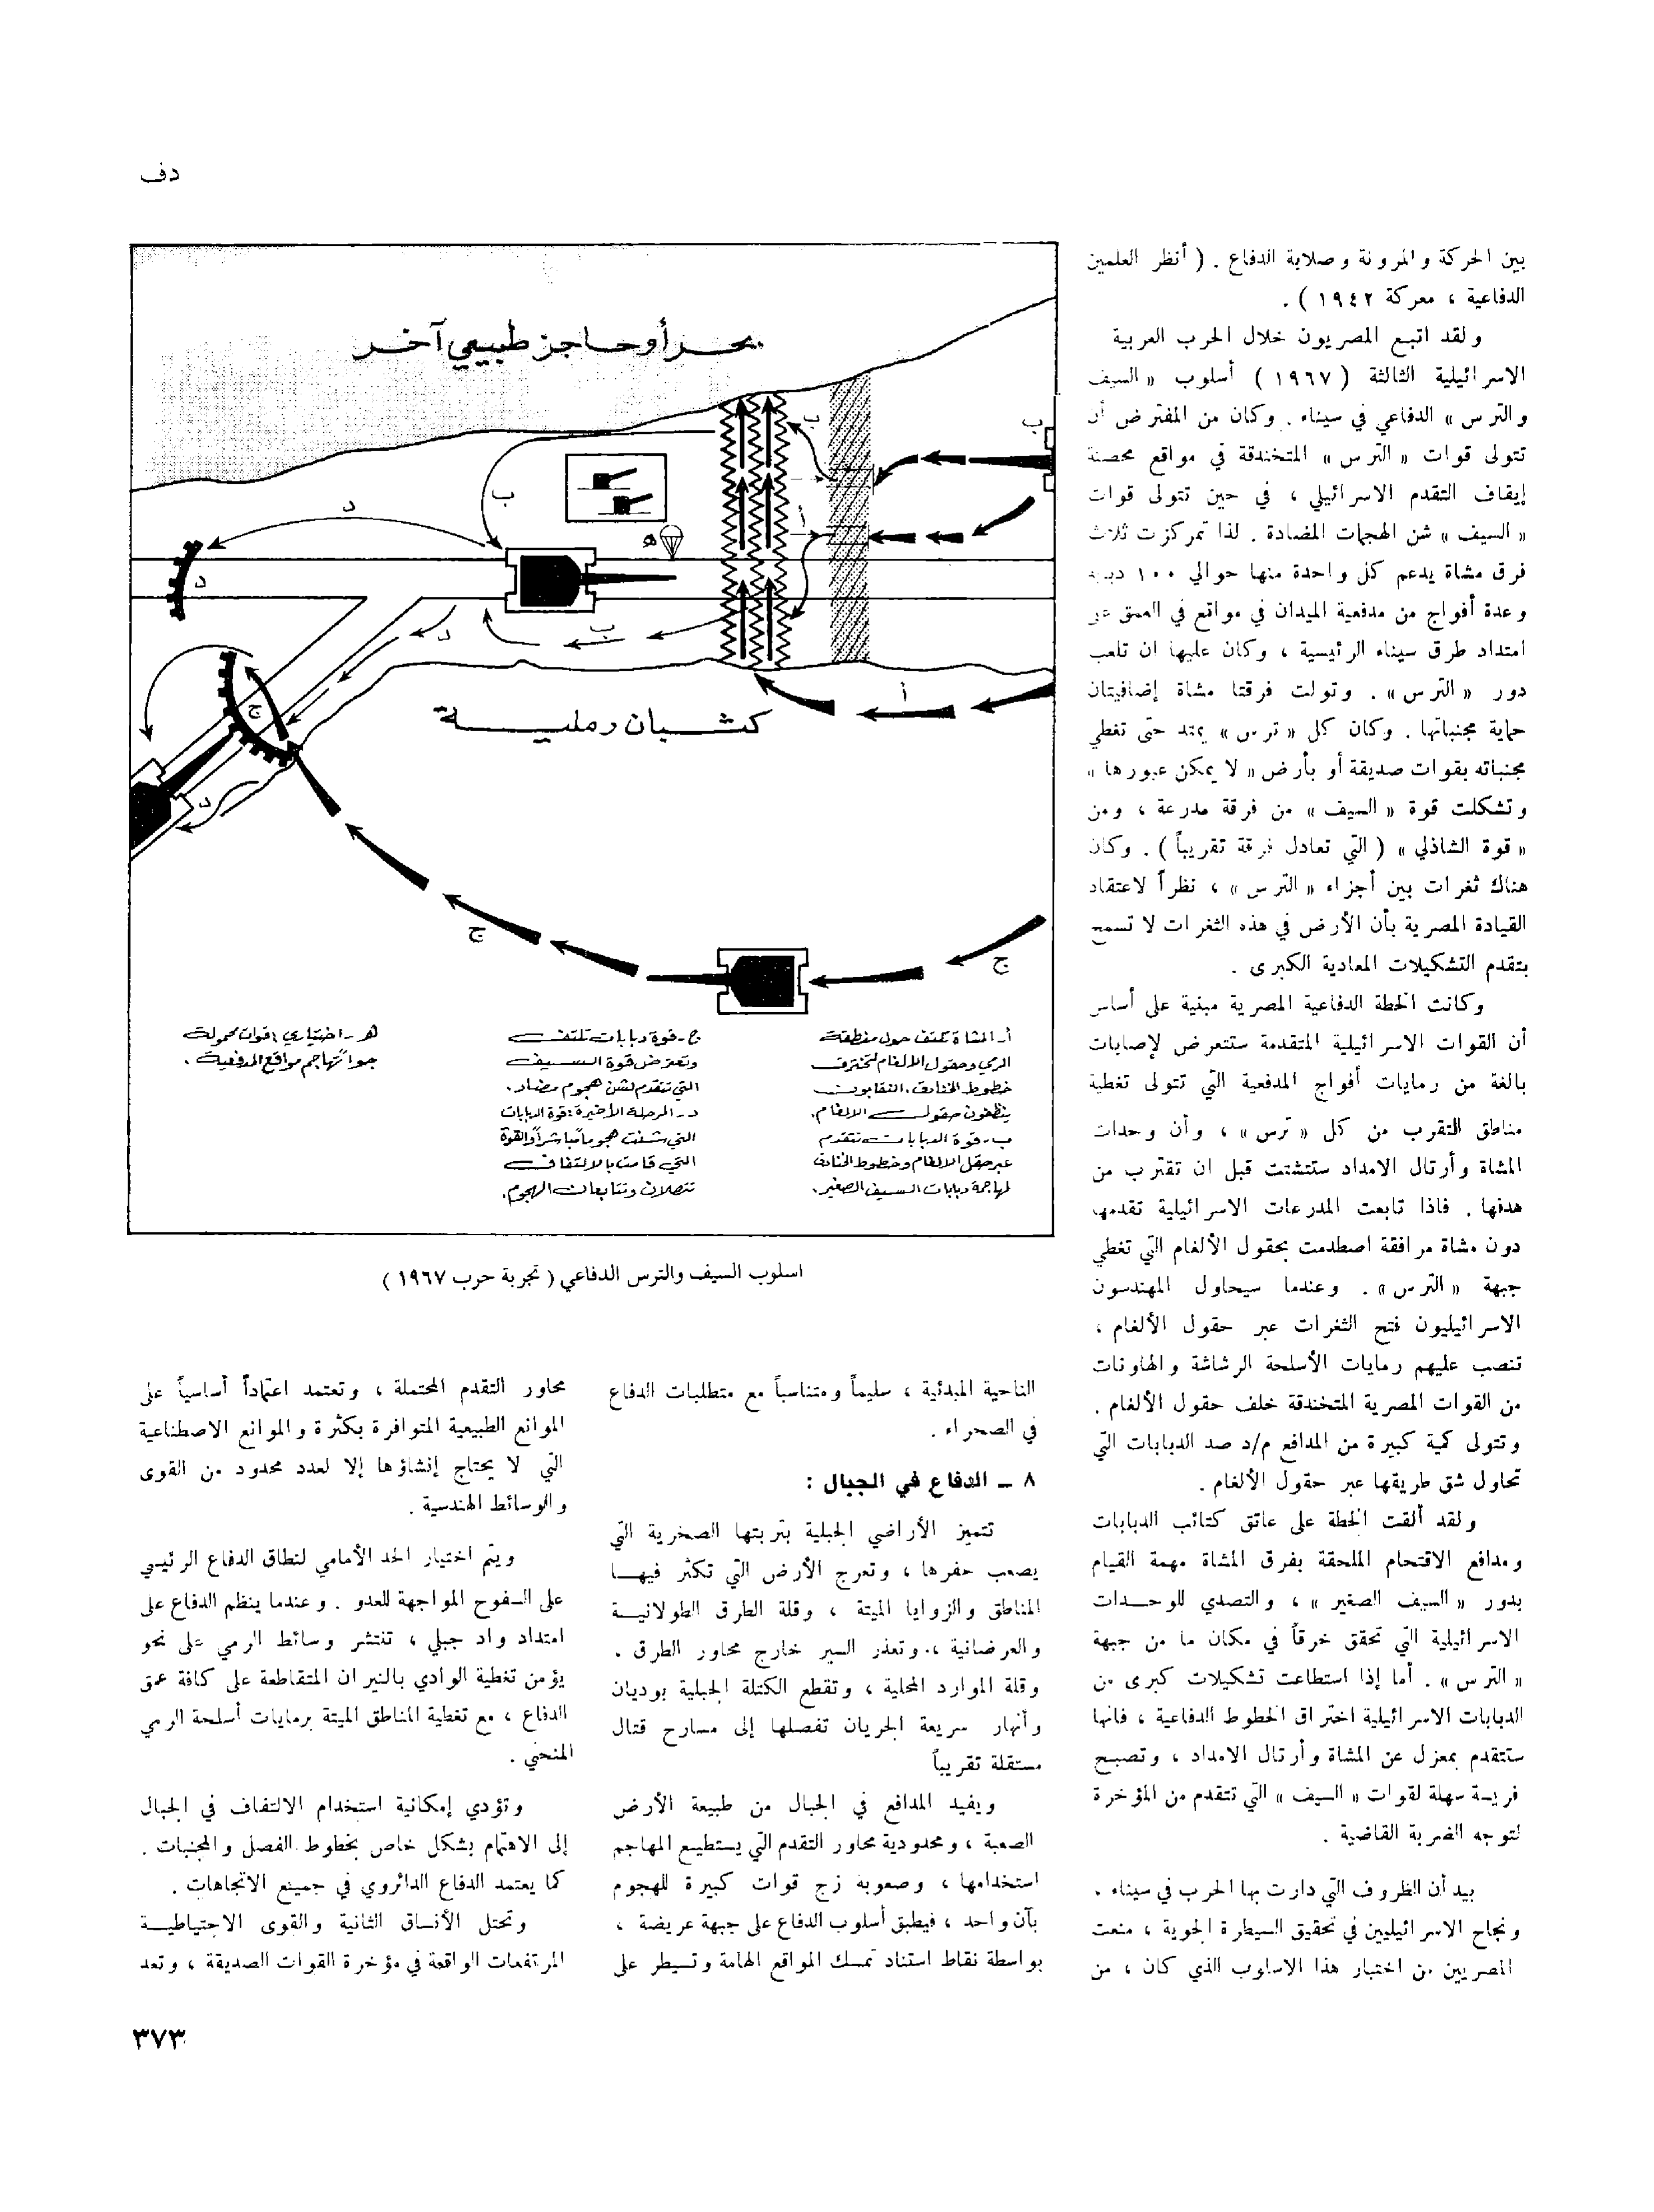 دف
بين الحركة والمرونة وصلابة الدفاع . ( أنظر العلمين
الدفاعية ، معركة ١٩٤٢ ) .
ولقد اتبع المصريون خلال الحرب العربية
الاسرائيلية الثالثة ( ١٩٦٧ ) أسلوب « السيف
والترس » الدفاعي في سيناء . وكان من المفترض أن
تتولى قوات « الترس » المتخندقة في مواقع محصنة
إيقاف التقدم الاسرائيلي ، في حين تتولى قوات
« السيف » شن الهجمات المضادة . لذا تمركزت ثلاث
فرق مشاة يدعم كل واحدة منها حوالي ١٠٠ دبابة
وعدة أفواج من مدفعية الميدان في مواقع في العمق عبر
امتداد طرق سيناء الرئيسية ، وكان عليها ان تلعب
دور « الترس » . وتولت فرقتا مشاة إضافيتان
حماية مجنباتها . وكان كل « ترس » يمتد حتى تغطي
مجنباته بقوات صديقة أو بأرض « لا يمكن عبورها »
وتشكلت قوة « السيف » من فرقة مدرعة ، ومن
« قوة الشاذلي » ( التي تعادل فرقة تقريباً ) . وكان
هناك ثغرات بين أجزاء « الترس » ، نظراً لاعتقاد
القيادة المصرية بأن الأرض في هذه الثغرات لا تسمح
بتقدم التشكيلات المعادية الكبرى .
وكانت الخطة الدفاعية المصرية مبنية على أساس
أن القوات الاسرائيلية المتقدمة ستتعرض لإصابات
بالغة من رمايات أفواج المدفعية التي تتولى تغطية
مناطق التقرب من كل « ترس » ، وأن وحدات
المشاة وأرتال الامداد ستتشتت قبل ان تقترب من
هدفها . فاذا تابعت المدرعات الاسرائيلية تقدمها
دون مشاة مرافقة اصطدمت بحقول الألغام التي تغطي
جبهة « الترس » . وعندما سيحاول المهندسون
الاسرائيليون فتح الثغرات عبر حقول الألغام ،
تنصب عليهم رمايات الأسلحة الرشاشة والهاونات
من القوات المصرية المتخندقة خلف حقول الألغام .
وتتولى كمية كبيرة من المدافع م/د صد الدبابات التي
تحاول شق طريقها عبر حقول الألغام .
ولقد ألقت الخطة على عاتق كتائب الدبابات
ومدافع الاقتحام الملحقة بفرق المشاة مهمة القيام
بدور « السيف الصغير » ، والتصدي للوحدات
الاسرائيلية التي تحقق خرقاً في مكان ما من جبهة
« الترس » . أما إذا استطاعت تشكيلات كبرى من
الدبابات الاسرائيلية اختراق الخطوط الدفاعية ، فانها
ستتقدم بمعزل عن المشاة وأرتال الامداد ، وتصبح
فريسة سهلة لقوات « السيف » التي تتقدم من المؤخرة
لتوجه الضربة القاضية .
بيد أن الظروف التي دارت بها الحرب في سيناء ،
ونجاح الاسرائيليين في تحقيق السيطرة الجوية ، منعت
المصريين من اختبار هذا الاسلوب الذي كان ، من
بحر أو حاجز طبيعي آخر
ب
ب
أ
ب
د
ه
د
د
ب
أ
ج
كثبان رملية
د
ج
ج
أ- المشاة تلتف حول منطقة
الرمي وحقول الالغام لتخترق
خطوط الخنادق . النقابون
ينظفون حقول الالغام .
ب- قوة الدبابات تتقدم
عبر حقل الالغام وخطوط الخنادق
لمهاجمة دبابات السيف الصغير .
ج- قوة دبابات تلتف
وتعترض قوة السيف
التي تتقدم لشن هجوم مضاد .
د- المرحلة الأخيرة : قوة الدبابات
التي شنت هجوماً مباشراً والقوة
التي قامت بالالتفاف
تتصلان وتتابعان الهجوم .
هـ- اختياري : قوات محمولة
جواً تهاجم مواقع المدفعية .
اسلوب السيف والترس الدفاعي ( تجربة حرب ١٩٦٧ )
الناحية المبدئية ، سليماً ومتناسباً مع متطلبات الدفاع
في الصحراء .
٨ – الدفاع في الجبال :
تتميز الأراضي الجبلية بتربتها الصخرية التي
يصعب حفرها ، وتعرج الأرض التي تكثر فيها
المناطق والزوايا الميتة ، وقلة الطرق الطولانية
والعرضانية ، وتعذر السير خارج محاور الطرق .
وقلة الموارد المحلية ، وتقطع الكتلة الجبلية بوديان
وأنهار سريعة الجريان تفصلها إلى مسارح قتال
مستقلة تقريباً
ويفيد المدافع في الجبال من طبيعة الأرض
الصعبة ، ومحدودية محاور التقدم التي يستطيع المهاجم
استخدامها ، وصعوبة زج قوات كبيرة للهجوم
بآن واحد ، فيطبق أسلوب الدفاع على جبهة عريضة ،
بواسطة نقاط استناد تمسك المواقع الهامة وتسيطر على
محاور التقدم المحتملة ، وتعتمد اعتماداً أساسياً على
الموانع الطبيعية المتوافرة بكثرة والموانع الاصطناعية
التي لا يحتاج إنشاؤها إلا لعدد محدود من القوى
والوسائط الهندسية .
ويتم اختيار الحد الأمامي لنطاق الدفاع الرئيسي
على السفوح المواجهة للعدو . وعندما ينظم الدفاع على
امتداد واد جبلي ، تنتشر وسائط الرمي على نحو
يؤمن تغطية الوادي بالنيران المتقاطعة على كافة عمق
الدفاع ، مع تغطية المناطق الميتة برمايات أسلحة الرمي
المنحني .
وتؤدي إمكانية استخدام الالتفاف في الجبال
إلى الاهتمام بشكل خاص بخطوط الفصل والمجنبات .
كما يعتمد الدفاع الدائروي في جميع الاتجاهات .
وتحتل الأنساق الثانية والقوى الاحتياطية
المرتفعات الواقعة في مؤخرة القوات الصديقة ، وتعد
٣٧٣